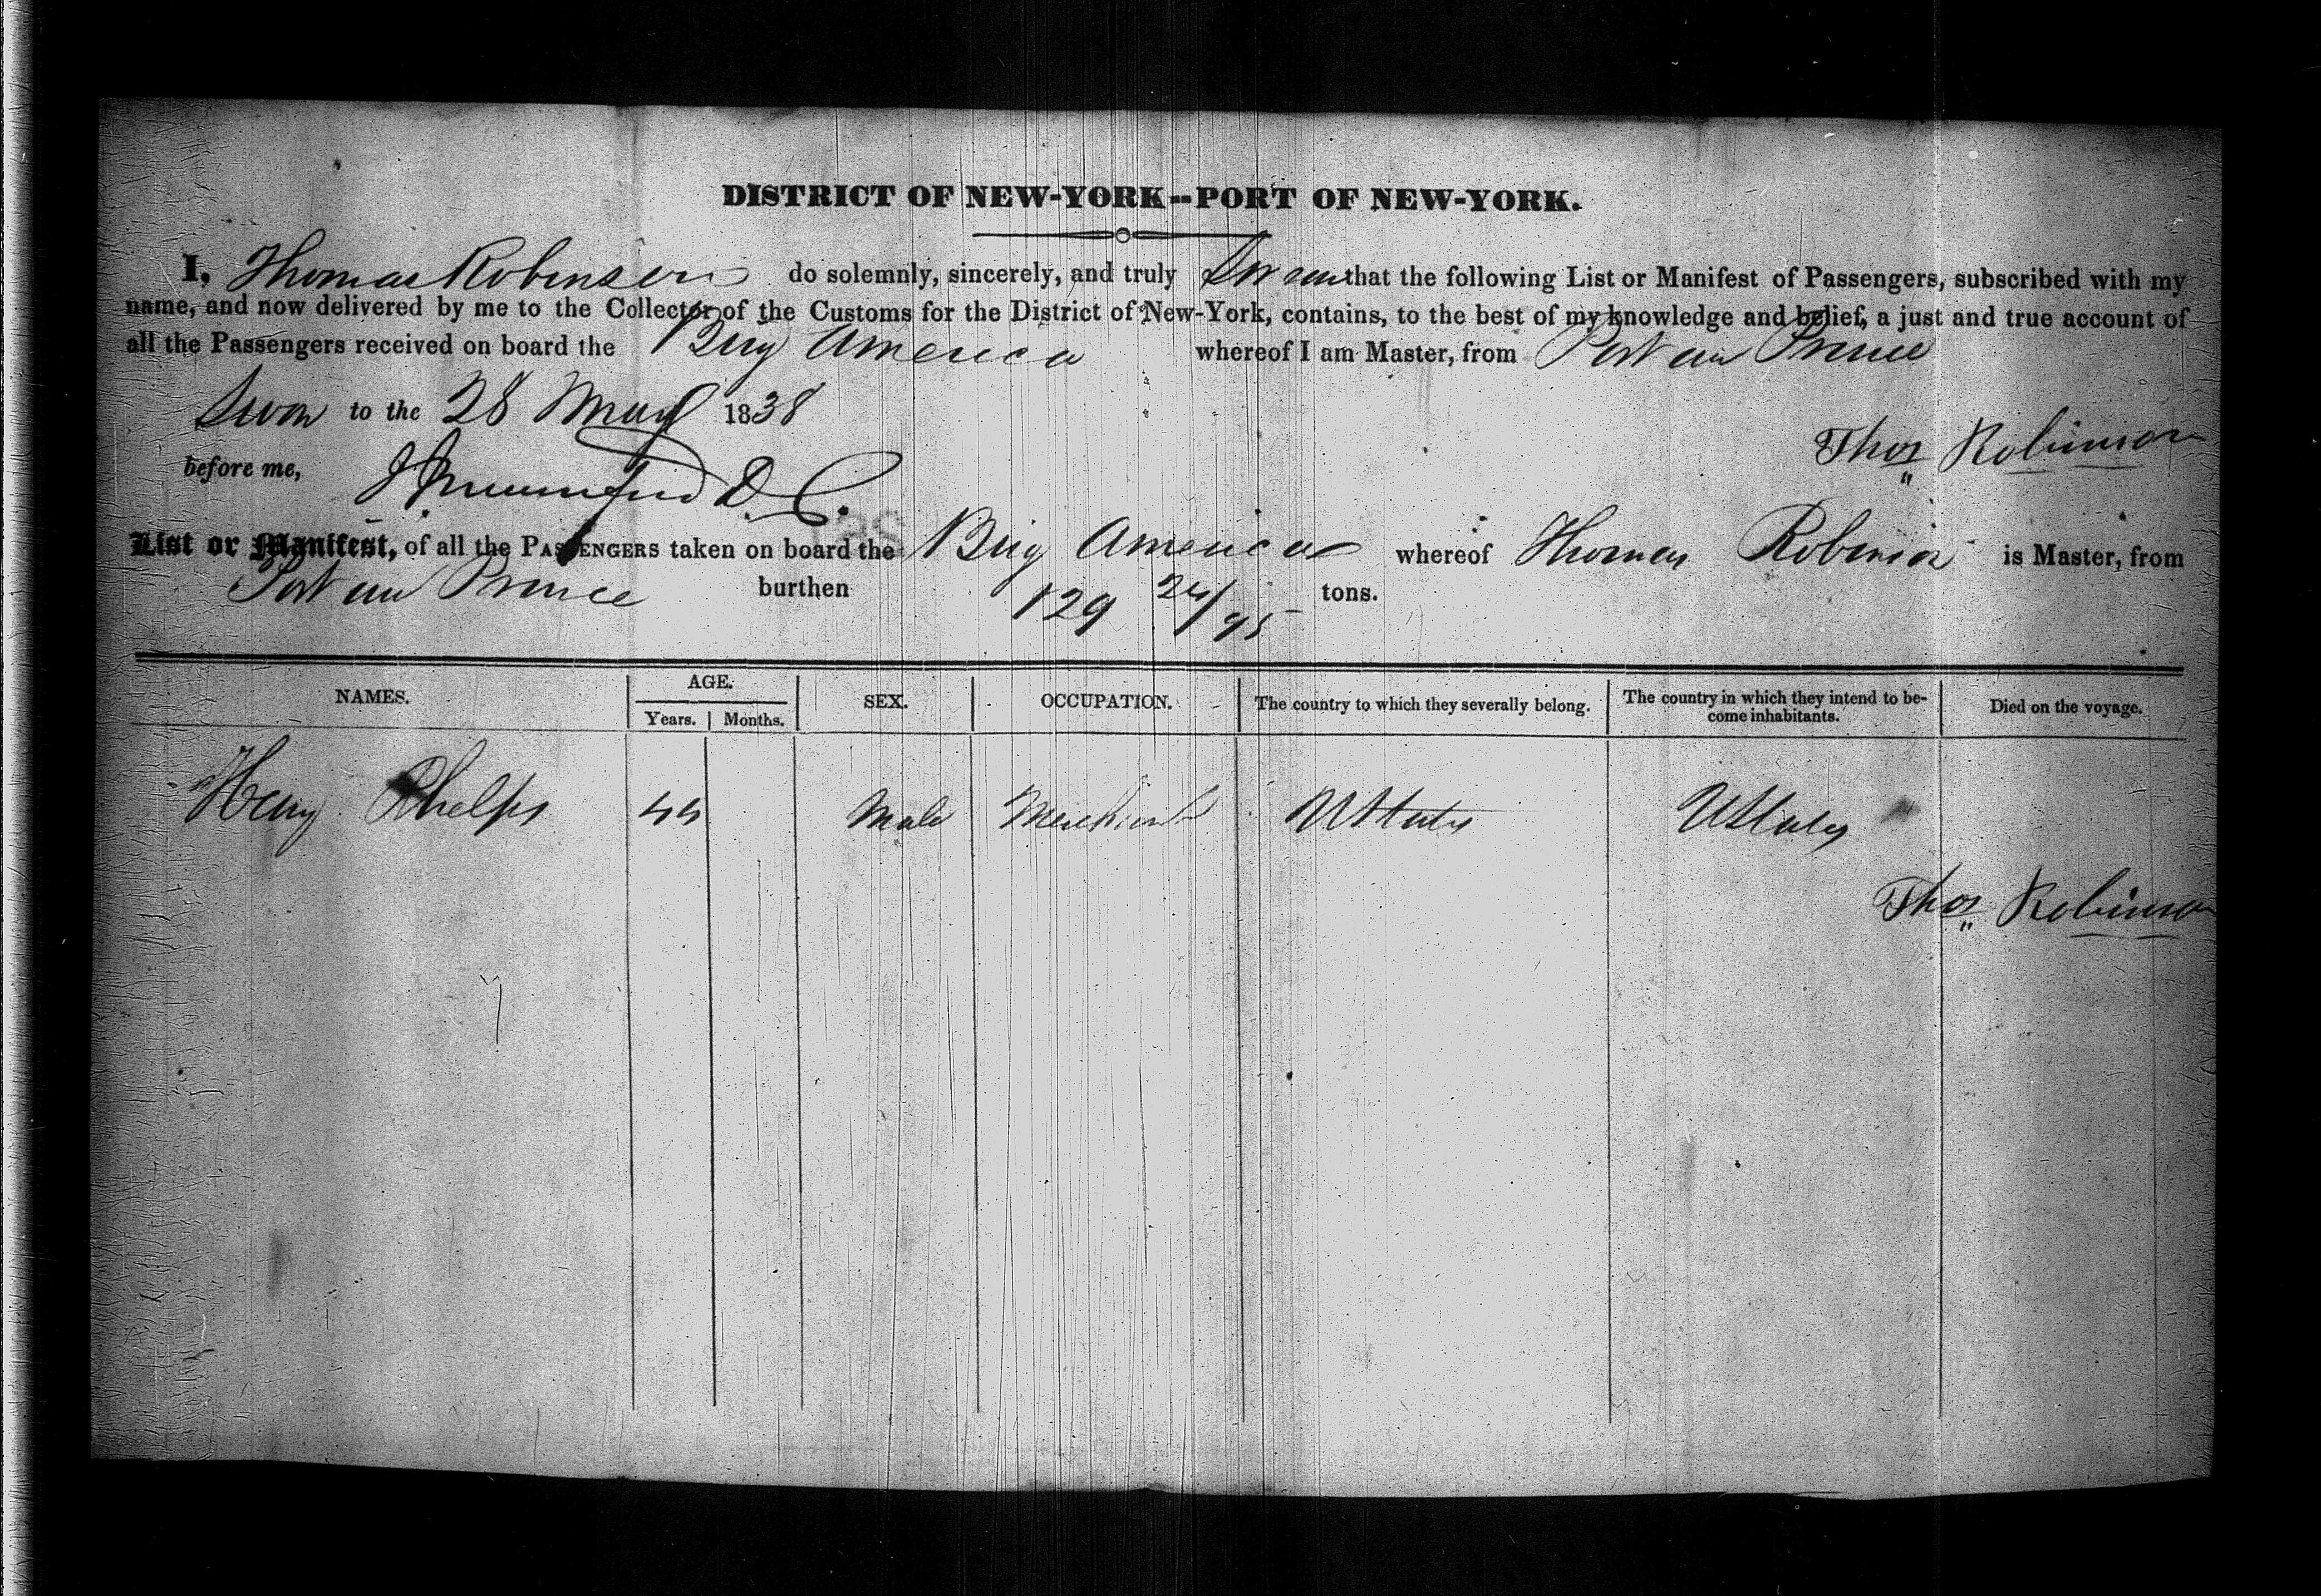 DISTRICT OF NEW-YORK--PORT OF NEW-YORK.
I, Thomas Robinson do solemnly, sincerely, and truly Swear that the following List or Manifest of Passengers, subscribed with my
name, and now delivered by me to the Collector of the Customs for the District of New-York, contains, to the best of my knowledge and belief, a just and true account of
all the Passengers received on board the Brig America whereof I am Master, from Port au Prince
Sworn to the 28 May 1838
Thos Robinson
before me, D. C.
List or Manifest, of all the PASSENGERS taken on board the Brig America whereof Thomas Robinson is Master, from
Port au Prince burthen 129 24/95 tons.
NAMES. AGE. Years. Months. SEX. OCCUPATION. The country to which they severally belong. The country in which they intend to become inhabitants. Died on the voyage.
Henry Phelps 45 Male Merchant UStates UStates
Thos Robinson